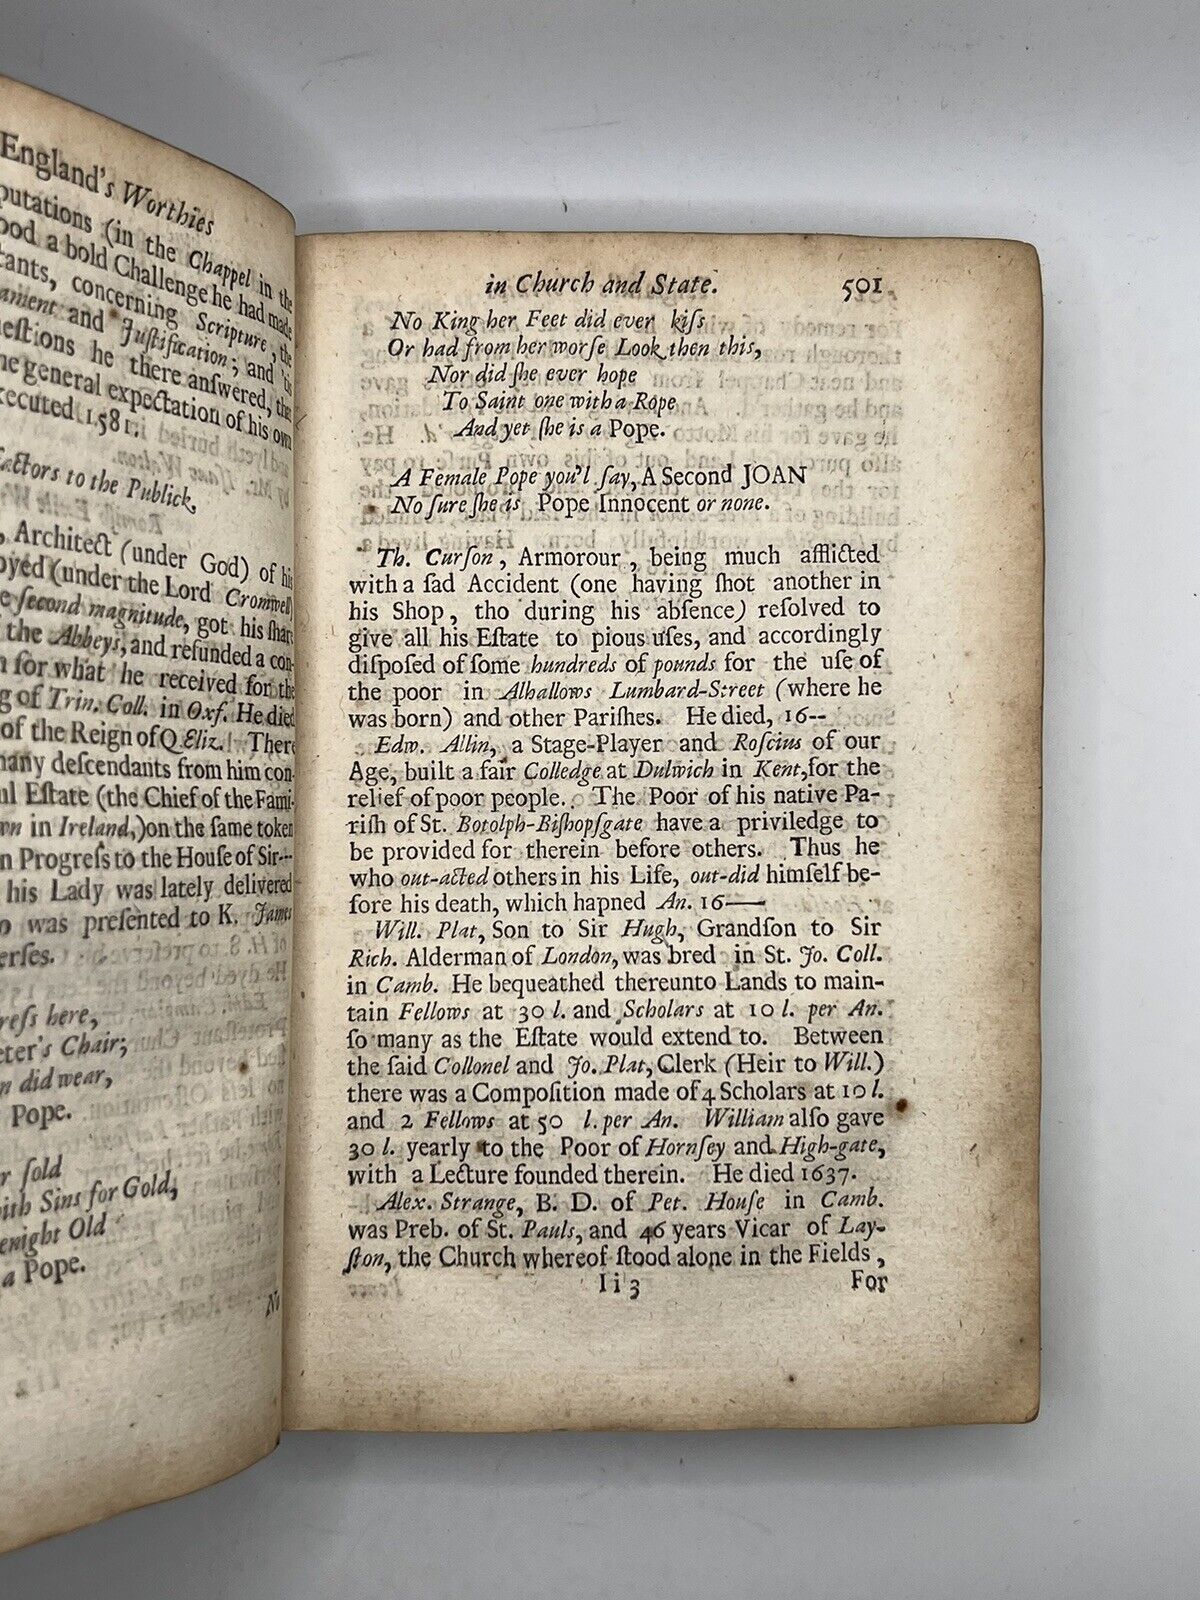 England's Worthies
putations (in the Chappel in the
ood a bold Challenge he had made
tants, concerning Scripture, the
ament and Juſtification; and 'tis
eſtions he there anſwered, that
he general expectation of his own
xecuted 1581.
factors to the Publick,
, Architect (under God) of his
oyed (under the Lord Cromwell)
e ſecond magnitude, got his ſhare
the Abbeys, and refunded a con-
n for what he received for the
g of Trin. Coll. in Oxf. He died
of the Reign of Q Eliz. There
many deſcendants from him con-
ul Eſtate (the Chief of the Fami-
wn in Ireland,) on the ſame token
n Progreſs to the Houſe of Sir---
his Lady was lately delivered
o was preſented to K. James
erſes.
reſs here,
eter's Chair;
n did wear,
Pope.
r ſold
ith Sins for Gold,
enight Old
a Pope.
No
in Church and State. 501
No King her Feet did ever kiſs
Or had from her worſe Look then this,
Nor did ſhe ever hope
To Saint one with a Rope
And yet ſhe is a Pope.
A Female Pope you'l ſay, A Second JOAN
No ſure ſhe is Pope Innocent or none.
Th. Curſon, Armorour, being much afflicted
with a ſad Accident (one having ſhot another in
his Shop, tho during his abſence) reſolved to
give all his Eſtate to pious uſes, and accordingly
diſpoſed of ſome hundreds of pounds for the uſe of
the poor in Alhallows Lumbard-Street (where he
was born) and other Pariſhes. He died, 16--
Edw. Allin, a Stage-Player and Roſcius of our
Age, built a fair Colledge at Dulwich in Kent, for the
relief of poor people. The Poor of his native Pa-
riſh of St. Botolph-Biſhopſgate have a priviledge to
be provided for therein before others. Thus he
who out-acted others in his Life, out-did himſelf be-
fore his death, which hapned An. 16——
Will. Plat, Son to Sir Hugh, Grandſon to Sir
Rich. Alderman of London, was bred in St. Jo. Coll.
in Camb. He bequeathed thereunto Lands to main-
tain Fellows at 30 l. and Scholars at 10 l. per An.
ſo many as the Eſtate would extend to. Between
the ſaid Collonel and Jo. Plat, Clerk (Heir to Will.)
there was a Compoſition made of 4 Scholars at 10 l.
and 2 Fellows at 50 l. per An. William alſo gave
30 l. yearly to the Poor of Hornſey and High-gate,
with a Lecture founded therein. He died 1637.
Alex. Strange, B. D. of Pet. Houſe in Camb.
was Preb. of St. Pauls, and 46 years Vicar of Lay-
ſton, the Church whereof ſtood alone in the Fields,
Iii 3 For